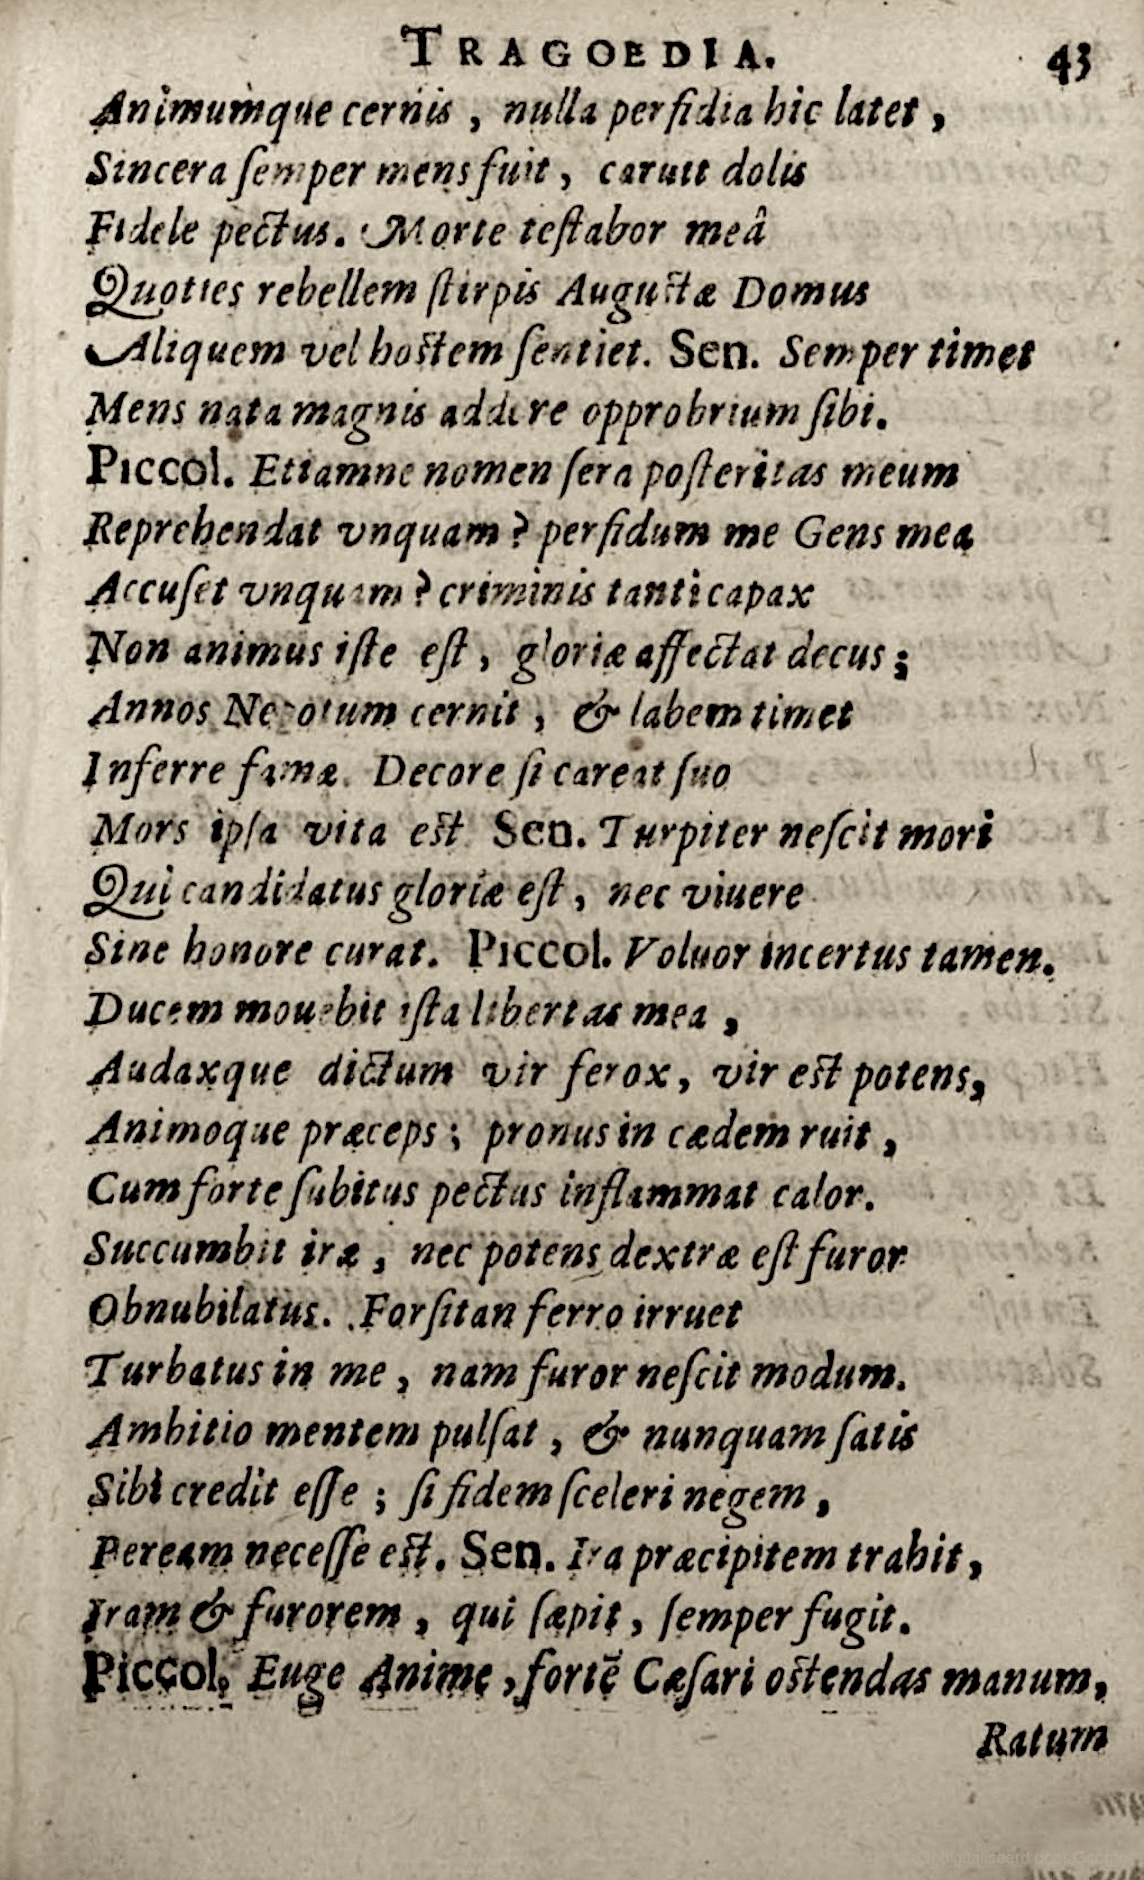 TRAGOEDIA. 43
Animumque cernis , nulla perfidia hic latet ,
Sincera ſemper mens fuit , caruit dolis
Fidele pectus. Morte teſtabor meâ
Quoties rebellem ſtirpis Auguſtæ Domus
Aliquem vel hoſtem ſentiet. Sen. Semper timet
Mens nata magnis addere opprobrium ſibi.
Piccol. Etiamne nomen ſera poſteritas meum
Reprehendat vnquam ? perfidum me Gens mea
Accuſet vnquam ? criminis tanti capax
Non animus iſte eſt , gloriæ affectat decus ;
Annos Nepotum cernit , & labem timet
Inferre famæ. Decore ſi careat ſuo
Mors ipſa vita eſt Sen. Turpiter neſcit mori
Qui candidatus gloriæ eſt , nec viuere
Sine honore curat. Piccol. Voluor incertus tamen.
Ducem mouebit iſta libertas mea ,
Audaxque dictum vir ferox , vir eſt potens,
Animoque præceps ; pronus in cædem ruit ,
Cum forte ſubitus pectus inflammat calor.
Succumbit iræ , nec potens dextræ eſt furor
Obnubilatus. Forſitan ferro irruet
Turbatus in me , nam furor neſcit modum.
Ambitio mentem pulſat , & nunquam ſatis
Sibi credit eſſe ; ſi fidem ſceleri negem ,
Peream neceſſe eſt. Sen. Ira præcipitem trahit ,
Iram & furorem , qui ſapit , ſemper fugit.
Piccol. Euge Anime , forte Cæſari oſtendas manum,
Ratum